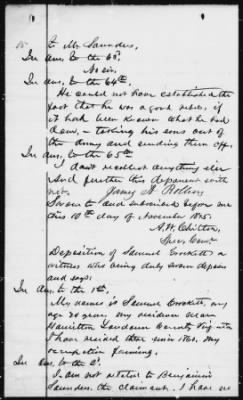 to Mr. Saunders.
In ans. to the 63d.
No sir.
In ans. to the 64th.
He could not have established the
fact that he was a good rebel, if
it had been known what he had
done, - taking his sons out of
the army and sending them off.
In ans. to the 65th
don't recollect anything else
And further this deponent saith
not.
Sworn to and subscribed before me
this 10th day of November 1875.
Deposition of Samuel Crockett a
witness who being duly sworn deposes
and says:
In ans. to the 1st.
My name is Samuel Crockett, my
age 30 years, my residence near
Hamilton Loudoun County Virginia
I have resided there since 1860. My
occupation farming.
In ans. to the 2d
I am not related to Benjamin
Saunders the claimant. I have no